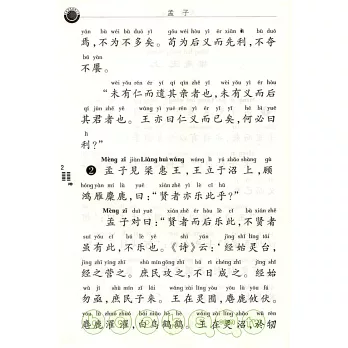 孟子
yān bù wéi bù duō yǐ gǒu wéi hòu yì ér xiān lì bù duó
焉，不为不多矣。苟为后义而先利，不夺
bú yàn
不餍。
wèi yǒu rén ér yí qí qīn zhě yě wèi yǒu yì ér hòu
“未有仁而遗其亲者也，未有义而后
qí jūn zhě yě wáng yì yuē rén yì ér yǐ yǐ hé bì yuē
其君者也。王亦曰仁义而已矣，何必曰
lì
利？”
2
Mèng zǐ jiàn Liáng huì wáng wáng lì yú zhǎo shàng gù
❷孟子见梁惠王，王立于沼上，顾
hóng yàn mí lù yuē xián zhě yì lè cǐ hū
鸿雁麋鹿，曰：“贤者亦乐此乎？”
Mèng zǐ duì yuē xián zhě ér hòu lè cǐ bù xián zhě
孟子对曰：“贤者而后乐此，不贤者
suī yǒu cǐ bú lè yě shī yún jīng shǐ líng tái
虽有此，不乐也。《诗》云：‘经始灵台，
jīng zhī yíng zhī shù mín gōng zhī bú rì chéng zhī jīng shǐ
经之营之。庶民攻之，不日成之。经始
wù jí shù mín zǐ lái wáng zài líng yòu yōu lù yōu fú
勿亟，庶民子来。王在灵囿，麀鹿攸伏。
麀鹿濯濯，白鸟鹤鹤。王在灵沼，於牣